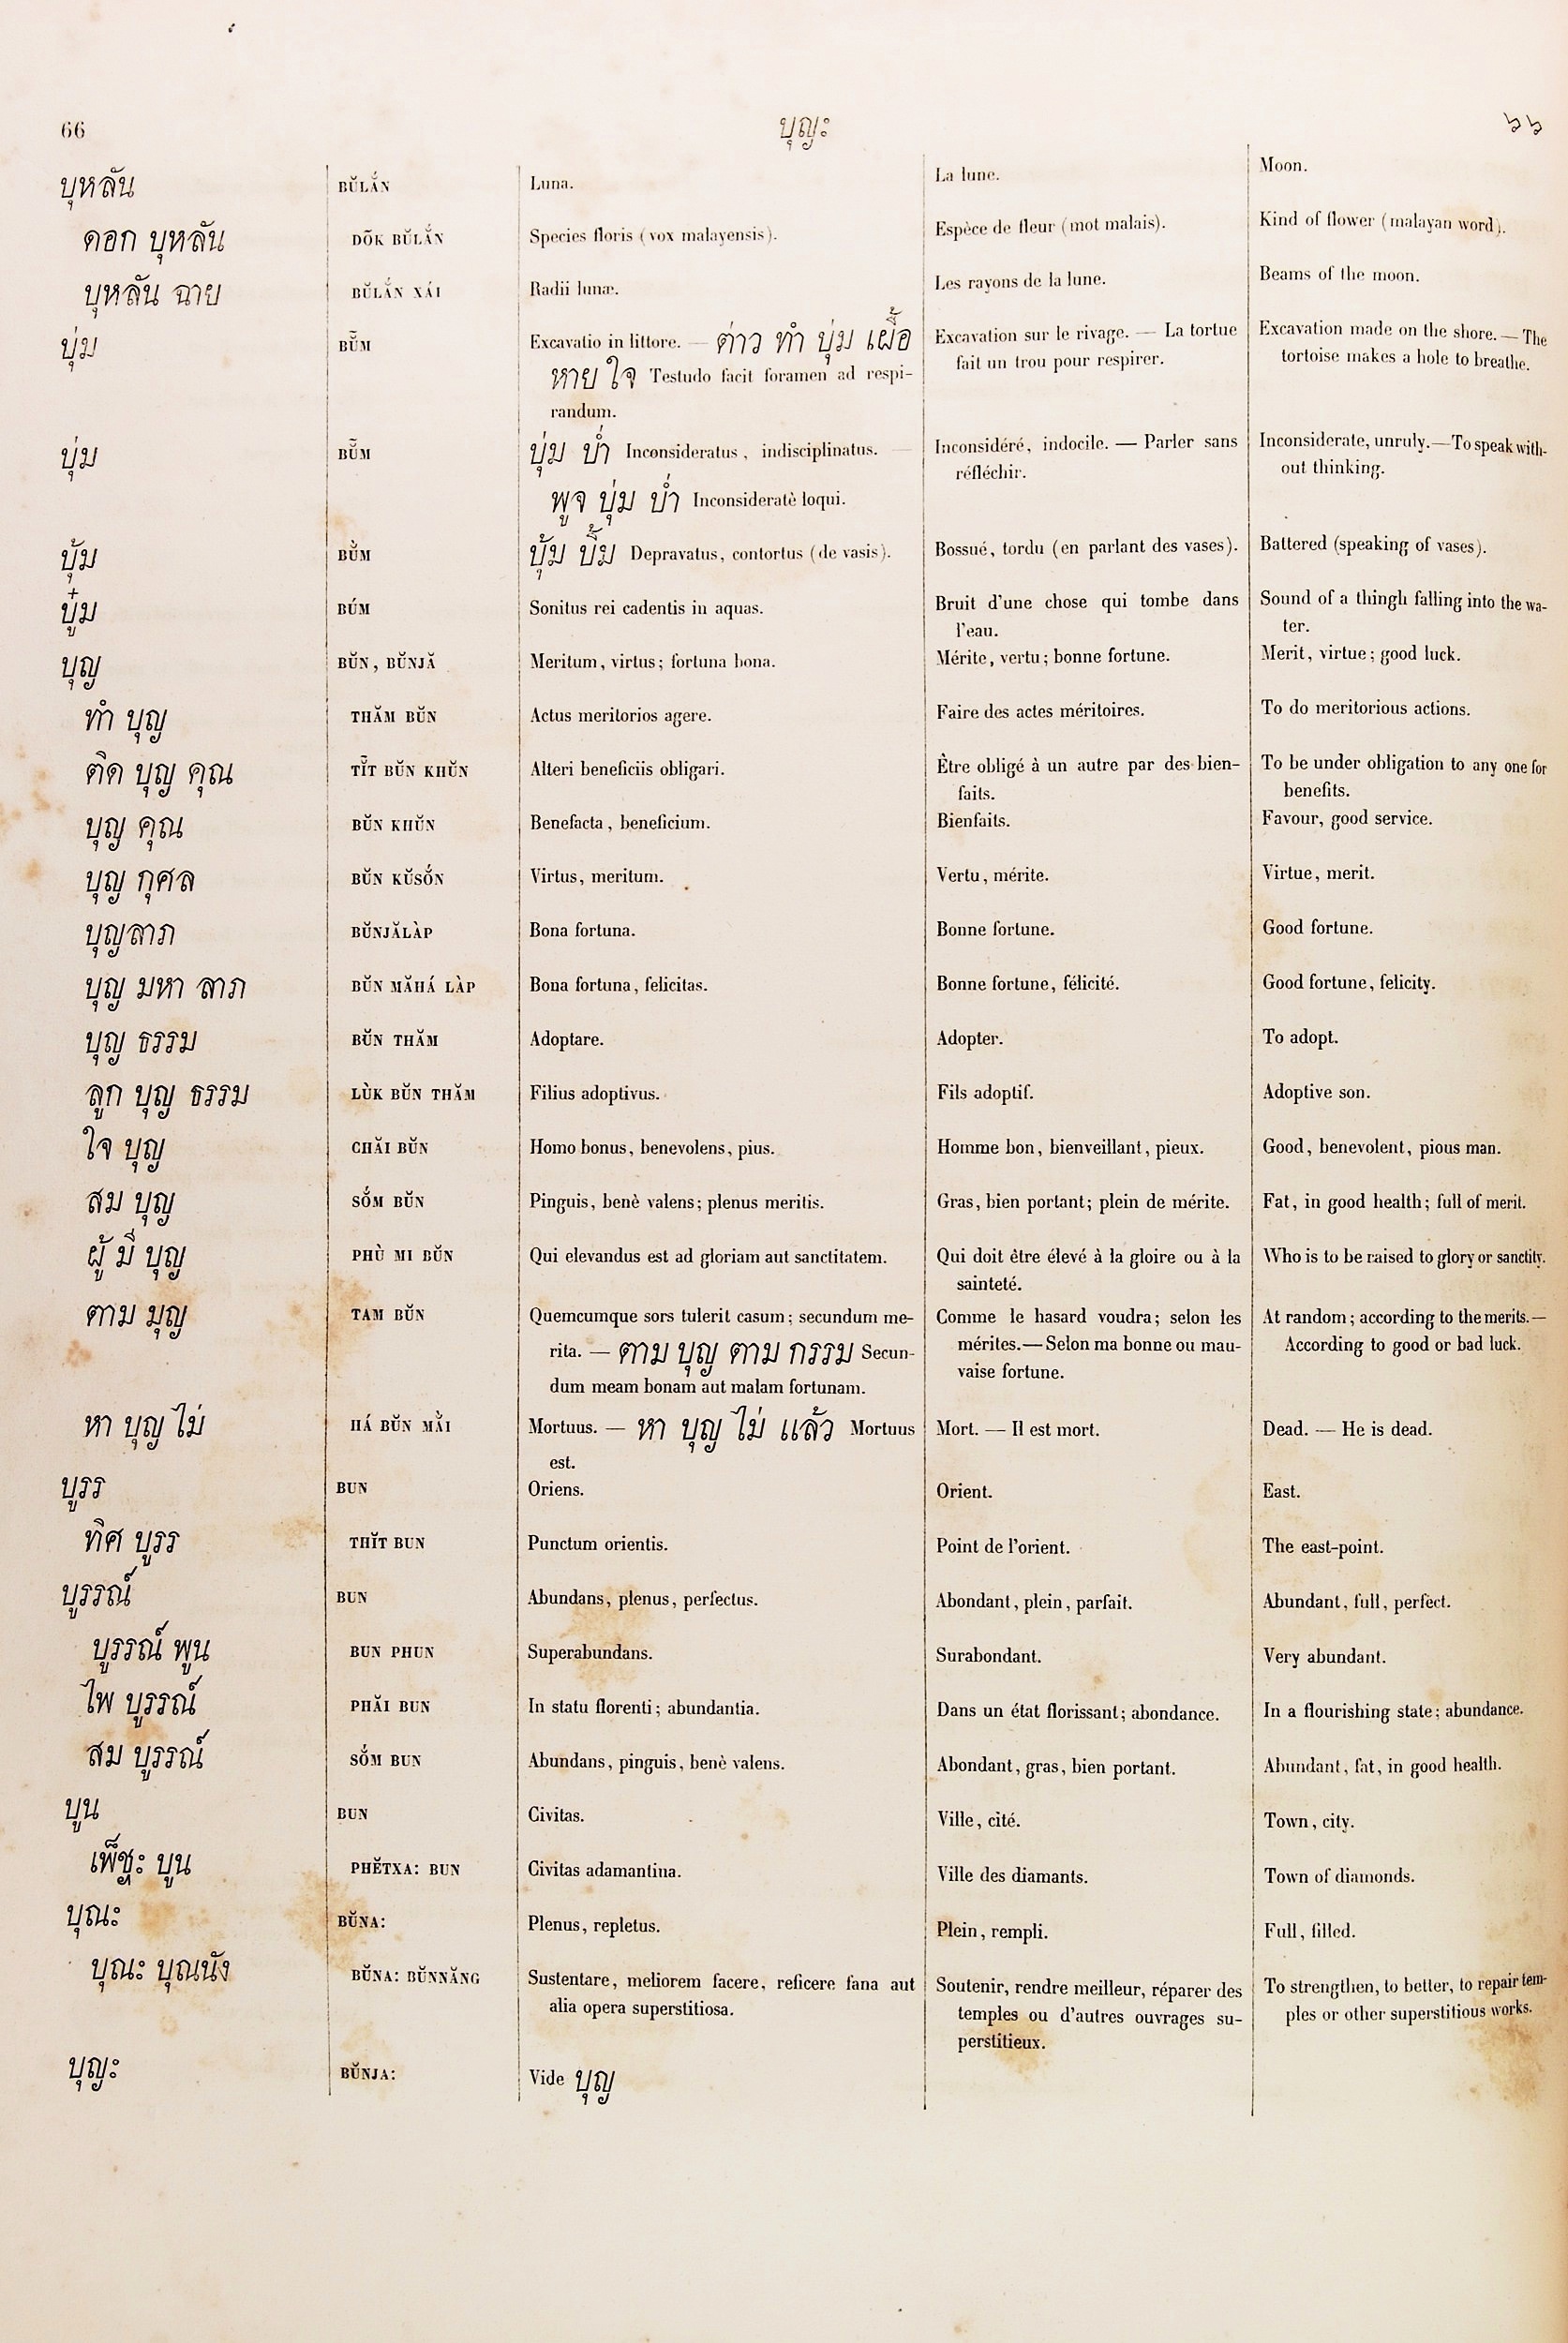 66 บุญะ ๖๖
บุหลัน BŬLẮN Luna. La lune. Moon.
ดอก บุหลัน DŎK BŬLẮN Species floris (vox malayensis). Espèce de fleur (mot malais). Kind of flower (malayan word).
บุหลัน ฉาย BŬLẮN XÁI Radii lunæ. Les rayons de la lune. Beams of the moon.
บุ่ม BŬ̀M Excavatio in littore. — ต่าว ทำ บุ่ม เผื้อ Excavation sur le rivage. — La tortue Excavation made on the shore. — The
หาย ใจ Testudo facit foramen ad respi- fait un trou pour respirer. tortoise makes a hole to breathe.
randum.
บุ่ม BŬ̀M บุ่ม บ่ำ Inconsideratus, indisciplinatus. — Inconsidéré, indocile. — Parler sans Inconsiderate, unruly. — To speak with-
พูจ บุ่ม บ่ำ Inconsideratè loqui. réfléchir. out thinking.
บุ้ม BŬ̀M บุ้ม บิ้ม Depravatus, contortus (de vasis). Bossué, tordu (en parlant des vases). Battered (speaking of vases).
บู๋ม BÚM Sonitus rei cadentis in aquas. Bruit d'une chose qui tombe dans Sound of a thingh falling into the wa-
l'eau. ter.
บุญ BŬN, BŬNJĂ Meritum, virtus; fortuna bona. Mérite, vertu; bonne fortune. Merit, virtue; good luck.
ทำ บุญ THĂM BŬN Actus meritorios agere. Faire des actes méritoires. To do meritorious actions.
ติด บุญ คุณ TĬT BŬN KHŬN Alteri beneficiis obligari. Être obligé à un autre par des bien- To be under obligation to any one for
faits. benefits.
บุญ คุณ BŬN KHŬN Benefacta, beneficium. Bienfaits. Favour, good service.
บุญ กุศล BŬN KŬSỐN Virtus, meritum. Vertu, mérite. Virtue, merit.
บุญลาภ BŬNJĂLÀP Bona fortuna. Bonne fortune. Good fortune.
บุญ มหา ลาภ BŬN MĂHÁ LÀP Bona fortuna, felicitas. Bonne fortune, félicité. Good fortune, felicity.
บุญ ธรรม BŬN THĂM Adoptare. Adopter. To adopt.
ลูก บุญ ธรรม LÙK BŬN THĂM Filius adoptivus. Fils adoptif. Adoptive son.
ใจ บุญ CHĂI BŬN Homo bonus, benevolens, pius. Homme bon, bienveillant, pieux. Good, benevolent, pious man.
สม บุญ SỐM BŬN Pinguis, benè valens; plenus meritis. Gras, bien portant; plein de mérite. Fat, in good health; full of merit.
ผู้ มี บุญ PHÙ MI BŬN Qui elevandus est ad gloriam aut sanctitatem. Qui doit être élevé à la gloire ou à la Who is to be raised to glory or sanctity.
sainteté.
ตาม มุญ TAM BŬN Quemcumque sors tulerit casum; secundum me- Comme le hasard voudra; selon les At random; according to the merits. —
rita. — ตาม บุญ ตาม กรรม Secun- mérites. — Selon ma bonne ou mau- According to good or bad luck.
dum meam bonam aut malam fortunam. vaise fortune.
หา บุญ ไม่ HÁ BŬN MẰI Mortuus. — หา บุญ ไม่ แล้ว Mortuus Mort. — Il est mort. Dead. — He is dead.
est.
บูรร BUN Oriens. Orient. East.
ทิศ บูรร THĬT BUN Punctum orientis. Point de l'orient. The east-point.
บูรรณ์ BUN Abundans, plenus, perfectus. Abondant, plein, parfait. Abundant, full, perfect.
บูรรณ์ พูน BUN PHUN Superabundans. Surabondant. Very abundant.
ไพ บูรรณ์ PHĂI BUN In statu florenti; abundantia. Dans un état florissant; abondance. In a flourishing state; abundance.
สม บูรรณ์ SỐM BUN Abundans, pinguis, benè valens. Abondant, gras, bien portant. Abundant, fat, in good health.
บูน BUN Civitas. Ville, cité. Town, city.
เพ็ชฺะ บูน PHĔTXA: BUN Civitas adamantina. Ville des diamants. Town of diamonds.
บุณะ BŬNA: Plenus, repletus. Plein, rempli. Full, filled.
บุณะ บุณนัง BŬNA: BŬNNĂNG Sustentare, meliorem facere, reficere fana aut Soutenir, rendre meilleur, réparer des To strengthen, to better, to repair tem-
alia opera superstitiosa. temples ou d'autres ouvrages su- ples or other superstitious works.
perstitieux.
บุญะ BŬNJA: Vide บุญ